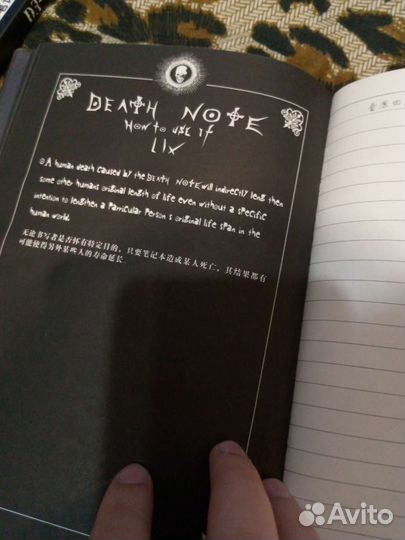 DEATH NOTE
How to use it
LIX
A human death caused by the DEATH NOTE will indirectly leng then
some other humans original length of life even without a specific
intention to lengthen a Parricular Person s original life span in the
human world.
无论书写者是否怀有特定目的，只要笔记本造成某人死亡，其结果都有
可能使得另外某些人的寿命延长
Avito